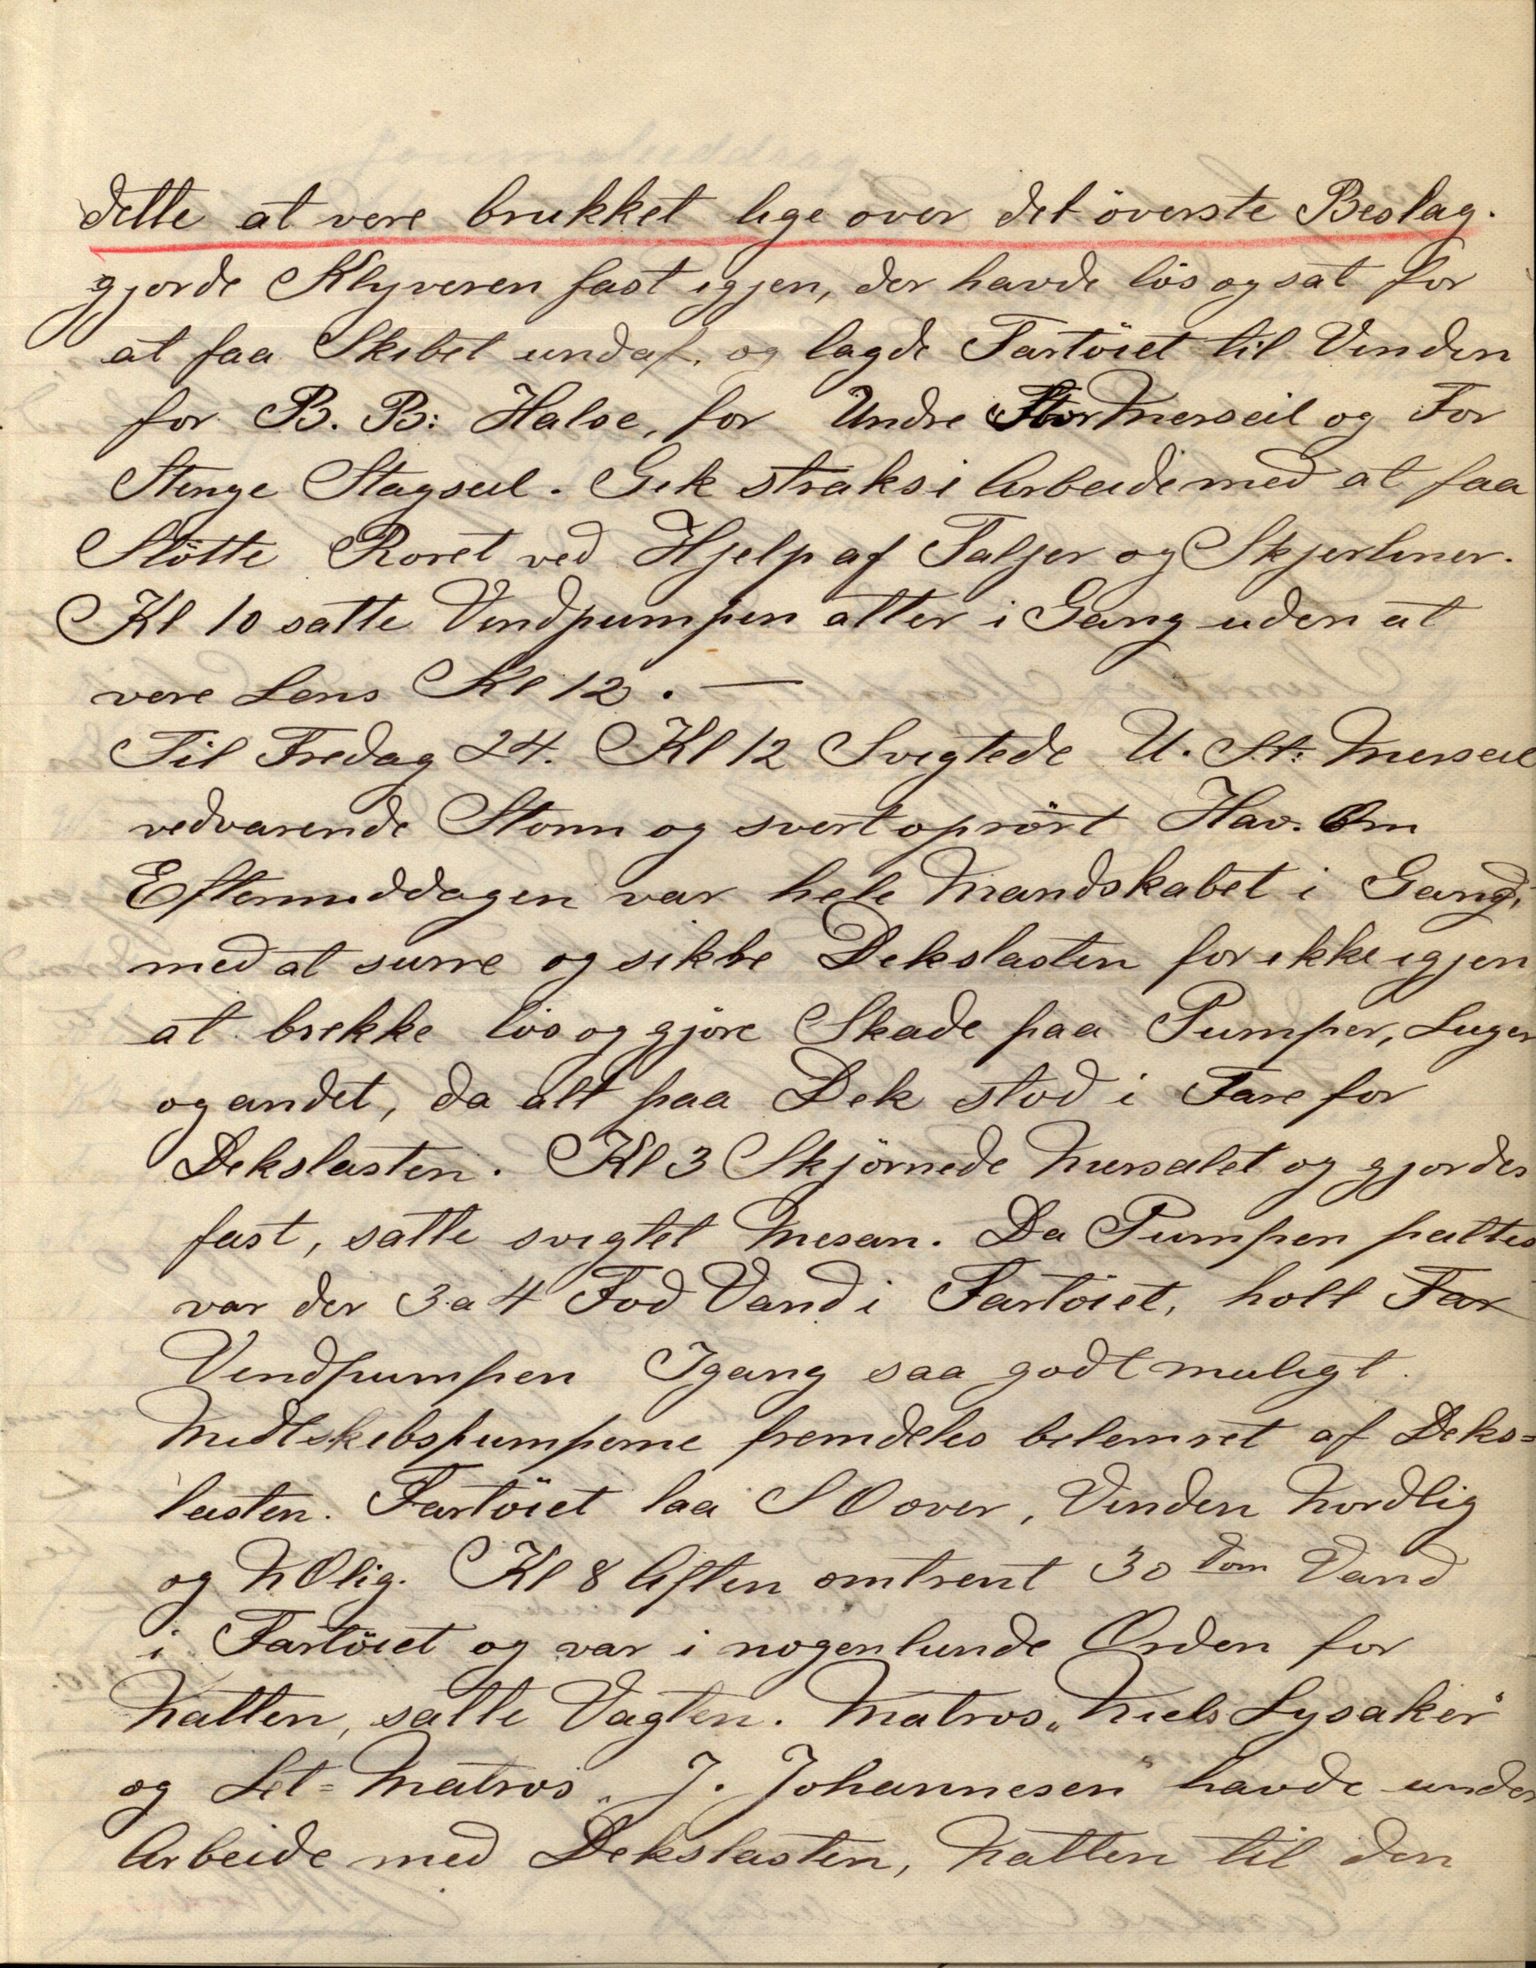 dette at vere brukket lige over det överste Beslag.
gjorde Klyveren fast igjen, der havde lös og sat for
at faa Skibet undaf, og lagde Fartöiet til Vinden
for B. B: Halse, for Undre Stor Merseil og For
Stenge Stagseil. Gik straks i Arbeide med at faa
Stötte Roret ved Hjelp af Taljer og Skjerliner.
Kl 10 satte Vindpumpen atter i Gang uden at
vere Lens Kl 12. —
Til Fredag 24. Kl 12 Svigtede U. St: Merseil
vedvarende Storm og svert oprört Hav. Om
Eftermiddagen var hele Mandskabet i Gang,
med at surre og sikkre Dekslasten for ikke igjen
at brekke lös og gjöre Skade paa Pumper, Luger
og andet, da alt paa Dek stod i Fare for
Dekslasten. Kl 3 Skjörnede Merseilet og gjordes
fast, satte svigtet Mesan. Da Pumpen peiltes
var der 3 a 4 Fod Vand i Fartöiet, holt Far
Vindpumpen Igang saa godt muligt.
Midtskibspumperne fremdeles belemret af Deks=
lasten. Fartöiet laa S O over, Vinden Nordlig
og N Olig. Kl 8 Aften omtrent 30 Tom Vand
i Fartöiet og var i nogenlunde Orden for
Natten, satte Vagten. Matros „Niels Lysaker"
og Let= Matros „J. Johannesen" havde under
Arbeide med Dekslasten, Natten til den